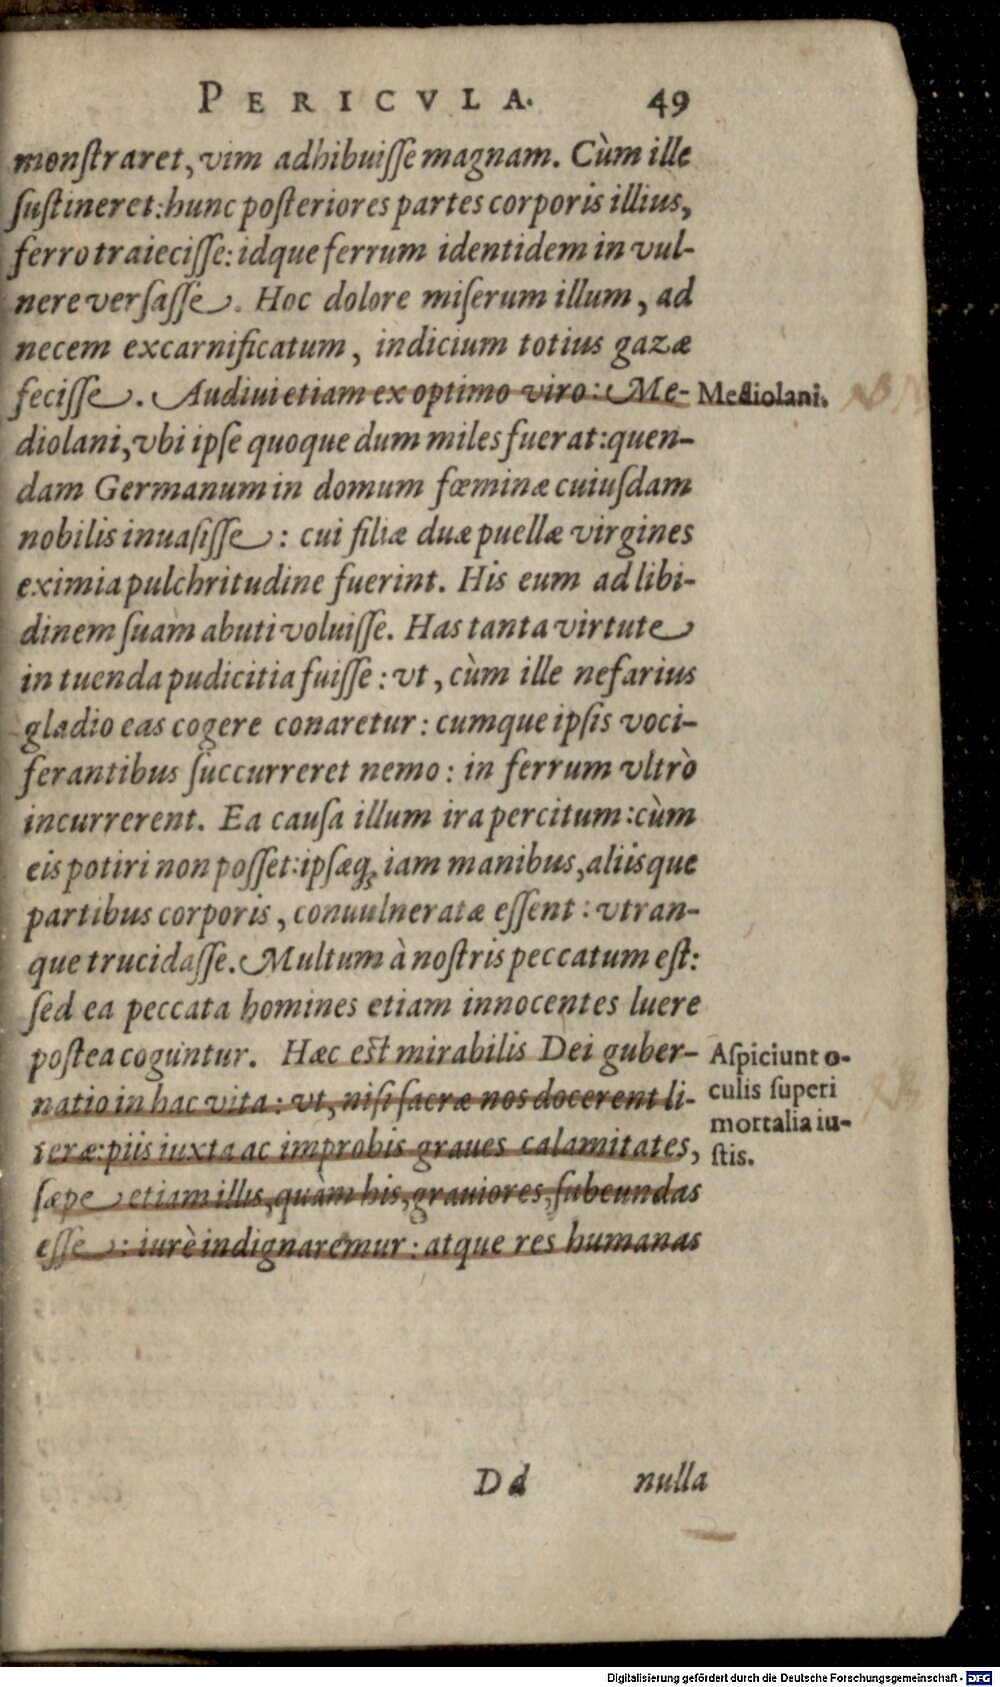 PERICVLA. 49
monſtraret, vim adhibuiſſe magnam. Cùm ille
ſuſtineret: hunc poſteriores partes corporis illius,
ferro traieciſſe: idque ferrum identidem in vul-
nere verſaſſe. Hoc dolore miſerum illum, ad
necem excarnificatum, indicium totius gazæ
feciſſe. Audiui etiam ex optimo viro: Me-
Mediolani.
diolani, vbi ipſe quoque dum miles fuerat: quen-
dam Germanum in domum fœminæ cuiuſdam
nobilis inuaſiſſe: cui filiæ duæ puellæ virgines
eximia pulchritudine fuerint. His eum ad libi-
dinem ſuam abuti voluiſſe. Has tanta virtute
in tuenda pudicitia fuiſſe: vt, cùm ille nefarius
gladio eas cogere conaretur: cumque ipſis voci-
ferantibus ſuccurreret nemo: in ferrum vltrò
incurrerent. Ea cauſa illum ira percitum: cùm
eis potiri non poſſet: ipſæq; iam manibus, aliisque
partibus corporis, conuulneratæ eſſent: vtran-
que trucidaſſe. Multum à noſtris peccatum eſt:
ſed ea peccata homines etiam innocentes luere
poſtea coguntur. Hæc eſt mirabilis Dei guber-
natio in hac vita: vt, niſi ſacræ nos docerent li-
teræ: piis iuxta ac improbis graues calamitates,
ſæpe etiam illis, quàm his, grauiores, ſubeundas
eſſe: iurè indignaremur: atque res humanas
Aſpiciunt o-
culis ſuperi
mortalia iu-
ſtis.
NB
Dd nulla
Digitalisierung gefördert durch die Deutsche Forschungsgemeinschaft - DFG